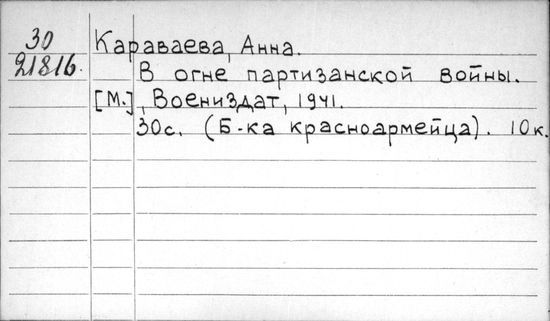 30
21816.
Караваева, Анна.
В огне партизанской войны.
[М.], Воениздат, 1941.
30с. (Б-ка красноармейца). 10к.